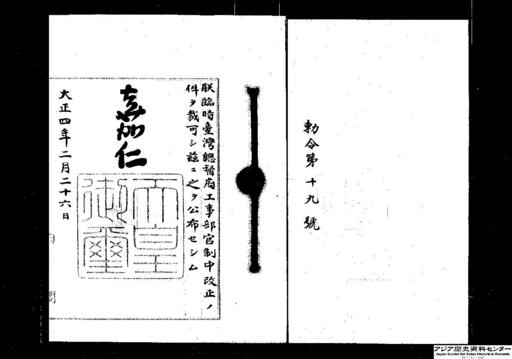 勅令第十九號
朕臨時臺灣總督府工事部官制中改正ノ
件ヲ裁可シ茲ニ之ヲ公布セシム
嘉仁
天皇御璽
大正四年二月二十六日
内閣
アジア歴史資料センター
Japan Center for Asian Historical Records